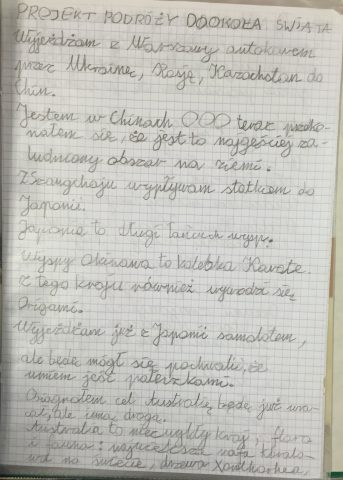 PROJEKT PODRÓŻY DOOKOŁA ŚWIATA
Wyjeżdżam z Warszawy autokarem
przez Ukrainę, Rosję, Kazachstan do
Chin.
Jestem w Chinach OOO teraz przeko-
nałem się, że jest to najgęściej za-
ludniony obszar na ziemi.
Z Szanghaju wypływam statkiem do
Japonii.
Japonia to długi łańcuch wysp.
Wyspy Okinawa to kolebka Karate.
z tego kraju również wywodzi się
Origami.
Wyjeżdżam już z Japonii samolotem,
ale będę mógł się pochwalić, że
umiem jeść pałeczkami.
Osiągnąłem cel Australię, będę już wra-
cał, ale inną drogą.
Australia to niezwykły kraj, flora
i fauna: największa rafa koralo-
wa na świecie, drzewa